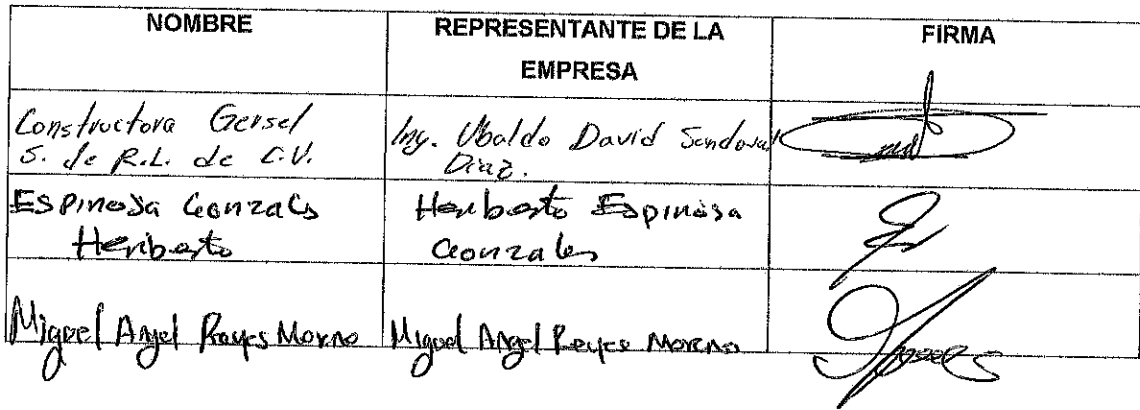 NOMBRE
REPRESENTANTE DE LA
EMPRESA
FIRMA
Constructora Gersel
S. de R.L. de C.V.
Ing. Ubaldo David Sandoval
Diaz.
Espinosa Gonzales
Heriberto
Heriberto Espinosa
Gonzales
Miguel Angel Reyes Moreno
Miguel Angel Reyes Moreno